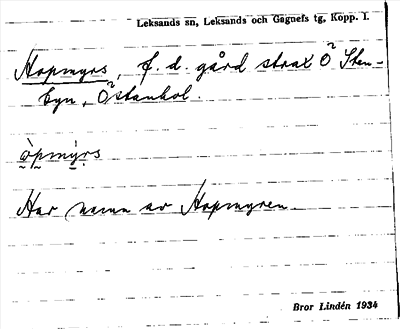 Leksands sn, Leksands och Gagnefs tg, Kopp. l.
Hopmyrs, f. d. gård strax Ö Sten-
byn, Östanhol.
òpmỳrs
Har namn av Hopmyren.
Bror Lindén 1934